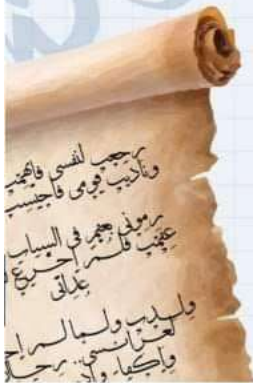 رجعت لنفسي فاتهمت
وناديت قومي فاحتسبت
رموني بعقم في الشباب
عقمت فلم أجزع ل
عداتي
ولدت ولما لم أجد
لعرائسي .. رجالا
وأكفاء وأد